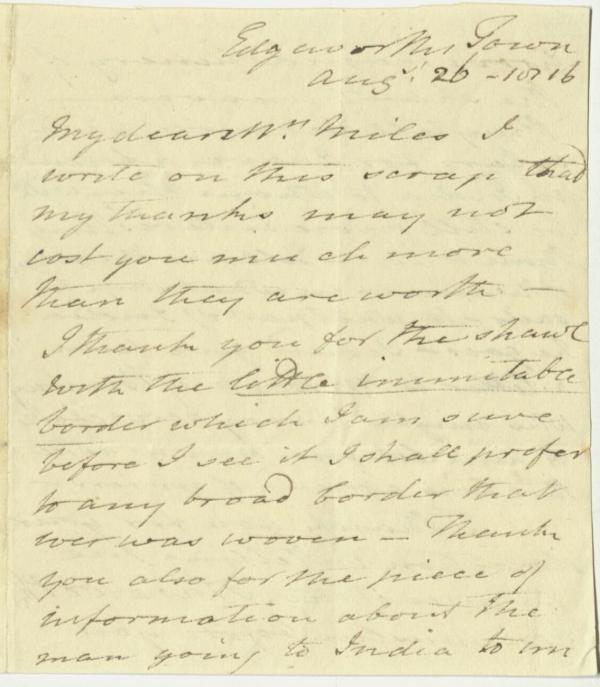 Edgeworths Town
Augst. 20 - 1816
My dear Mrs. Miles I
write on this scrap that
my thanks may not
cost you much more
than they are worth —
I thank you for the shawl
with the little inimitable
border which I am sure
before I see it I shall prefer
to any broad border that
ever was woven — Thank
you also for the piece of
information about the
man going to India to